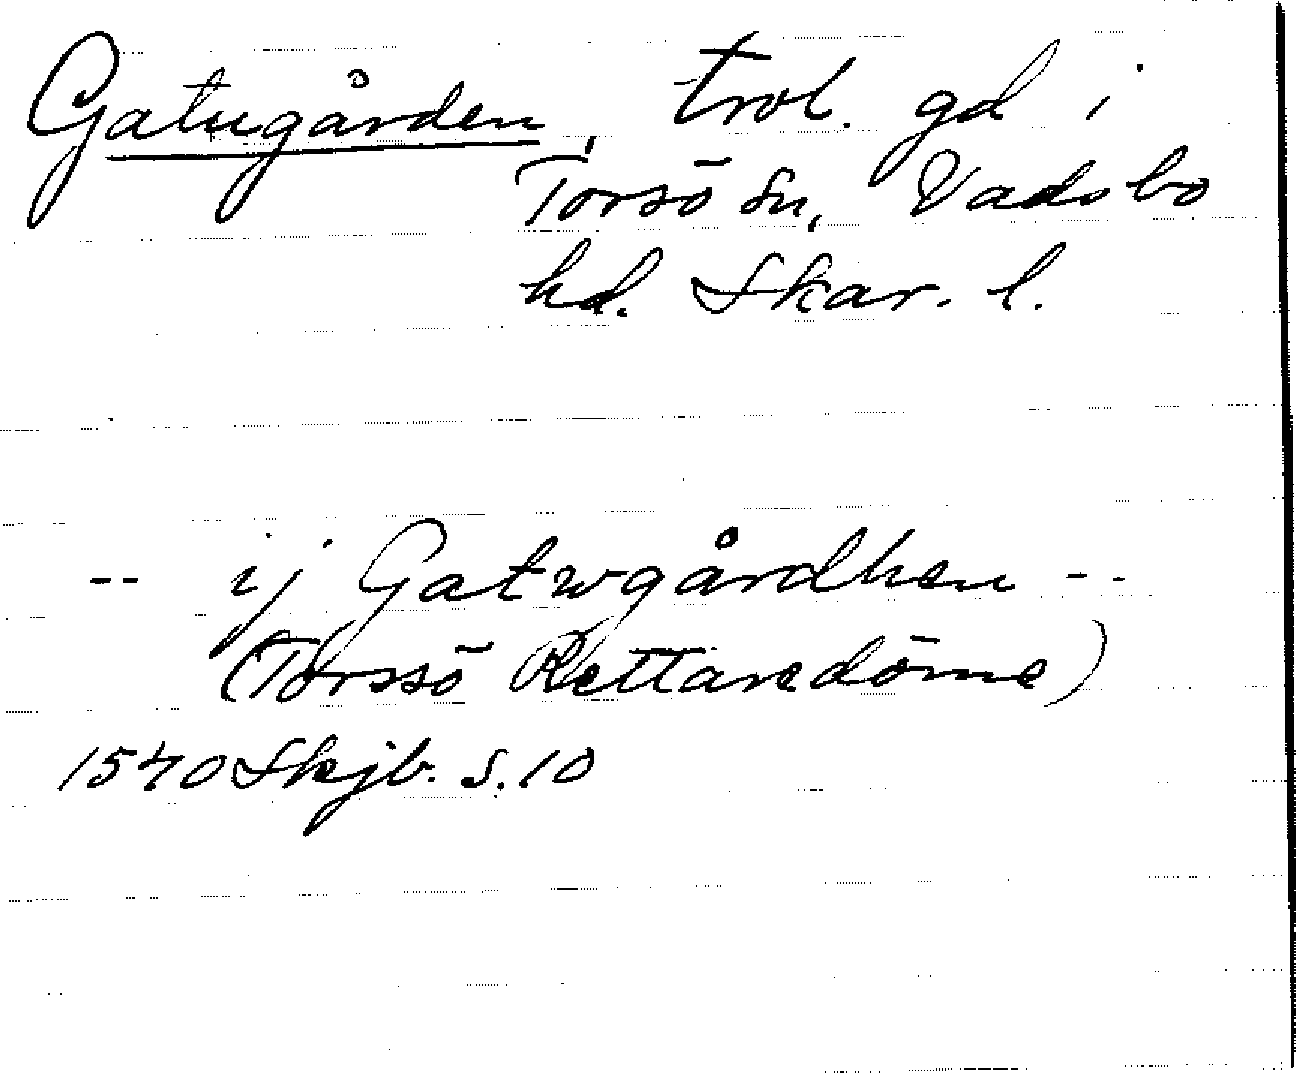 Gatugården, trol. gd i
Torsö sn, Vadsbo
hd. Skar. l.
-- ij Gatwgårdhen --
(Torssö Rettaredöme)
1540 Skjb. s. 10